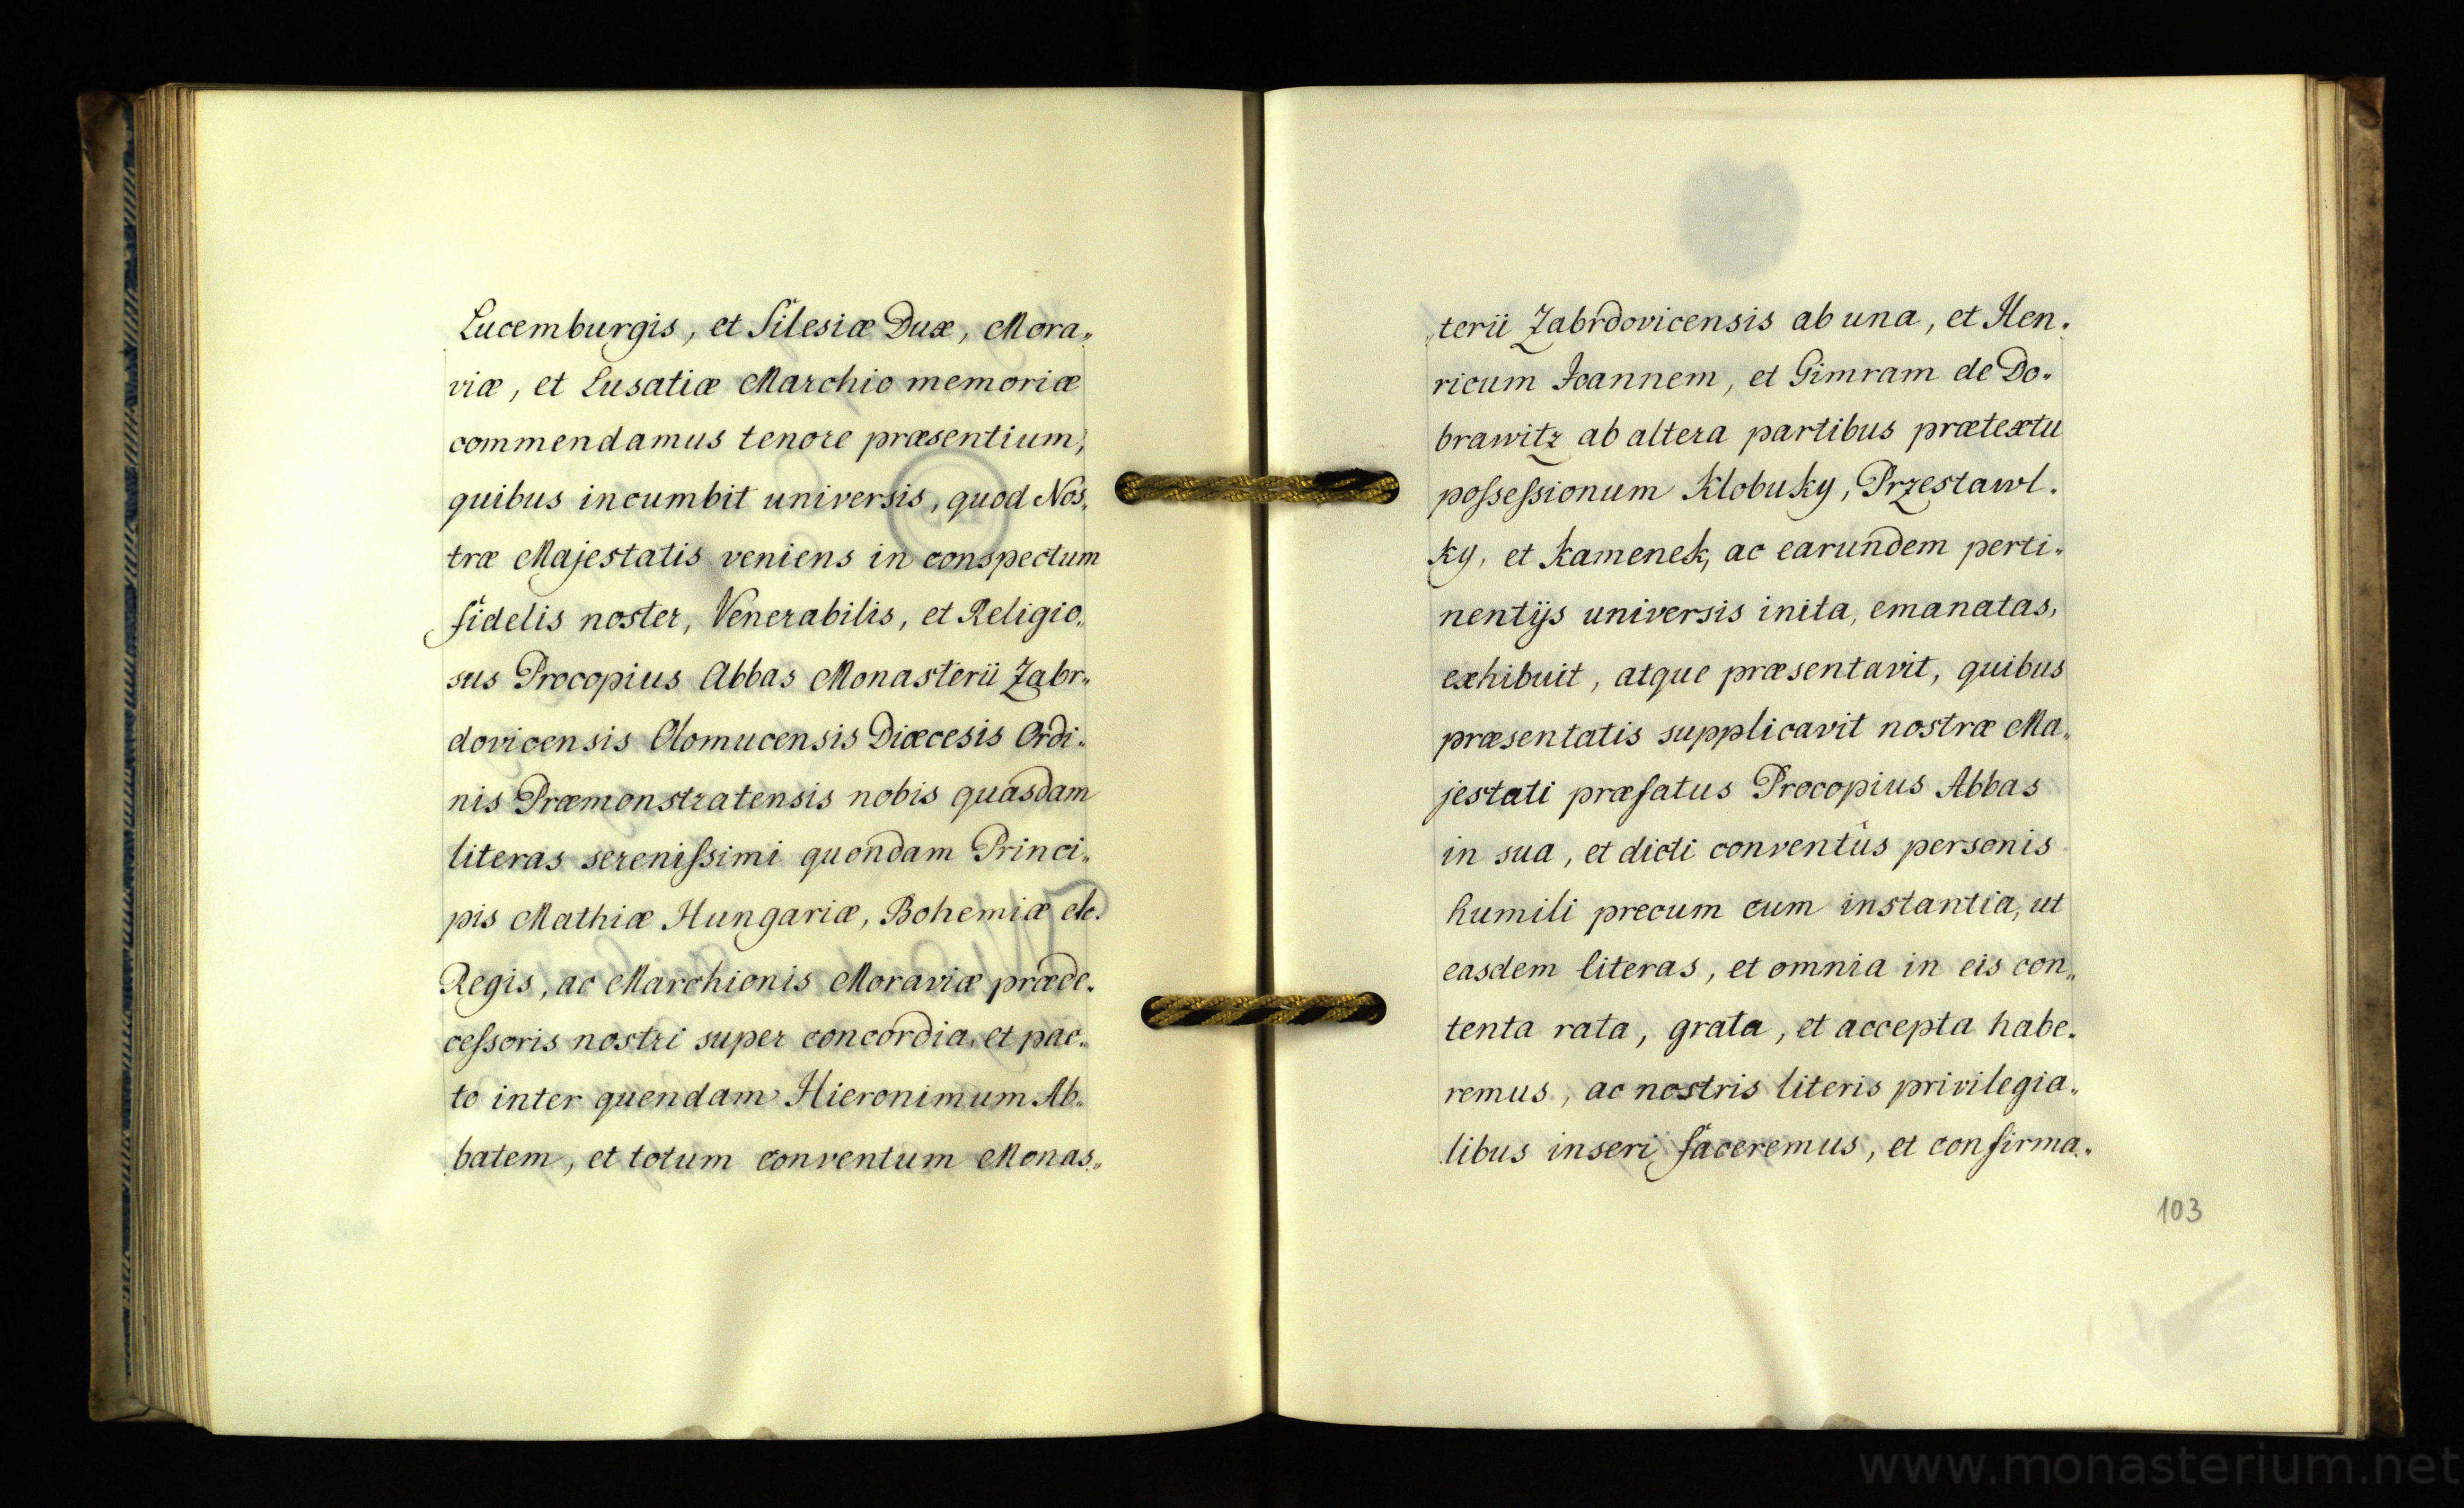 Lucemburgis, et Silesiæ Dux, Mora„
viæ, et Lusatiæ Marchio memoriæ
commendamus tenore præsentium,
quibus incumbit universis, quod Nos„
træ Majestatis veniens in conspectum
fidelis noster, Venerabilis, et Religio„
sus Procopius Abbas Monasterii Zabr„
dovicensis Olomucensis Diœcesis Ordi„
nis Præmonstratensis nobis quasdam
literas serenißimi quondam Princi„
pis Mathiæ Hungariæ, Bohemiæ etc.
Regis, ac Marchionis Moraviæ præde„
ceßoris nostri super concordia, et pac„
to inter quendam Hieronimum Ab„
batem, et totum conventum Monas„
„terii Zabrdovicensis ab una, et Hen„
ricum Joannem, et Gimram de Do„
brawitz ab altera partibus prætextu
poßeßionum Klobuky, Przestawl„
ky, et Kamenek, ac earundem perti„
nentijs universis inita, emanatas,
exhibuit, atque præsentavit, quibus
præsentatis supplicavit nostræ Ma„
jestati præfatus Procopius Abbas
in sua, et dicti conventûs personis
humili precum cum instantia, ut
easdem literas, et omnia in eis con„
tenta rata, grata, et accepta habe„
remus, ac nostris literis privilegia„
libus inseri faceremus, et confirma„
103
www.monasterium.net